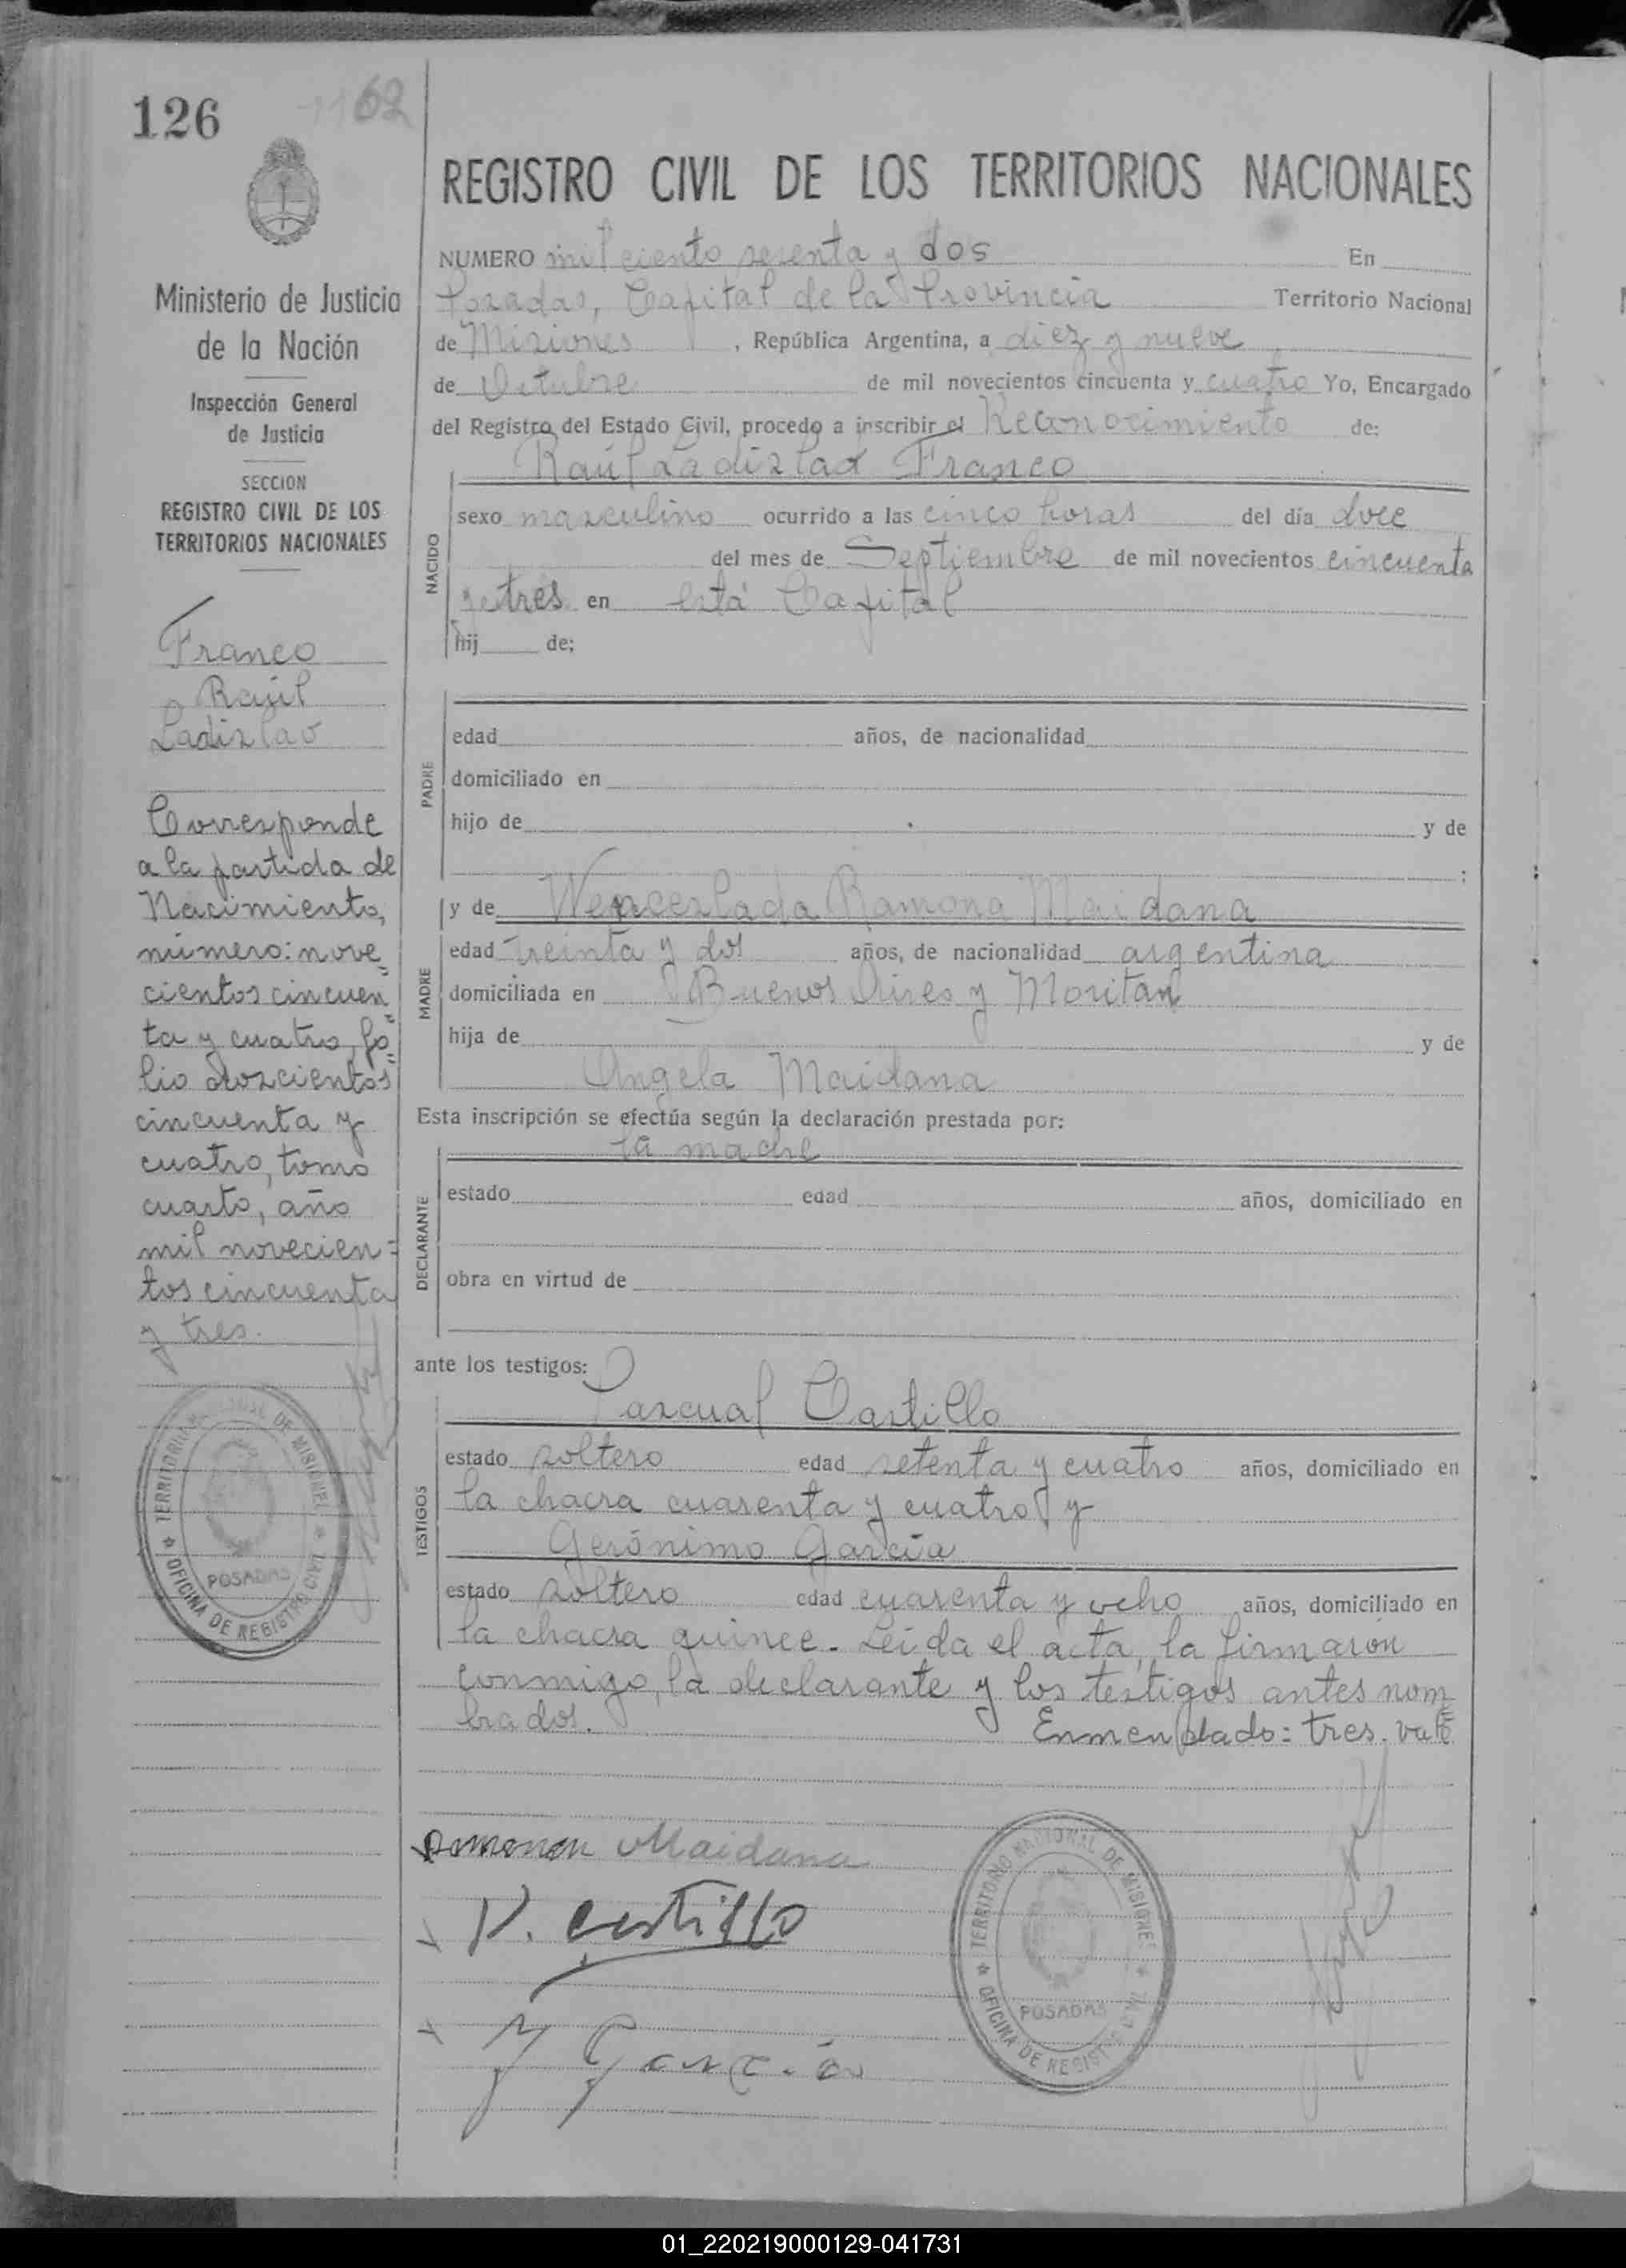 126
1162
REGISTRO CIVIL DE LOS TERRITORIOS NACIONALES
NUMERO mil ciento sesenta y dos En
Posadas, Capital de la Provincia Territorio Nacional
de Misiones, República Argentina, a diez y nueve
de Octubre de mil novecientos cincuenta y cuatro Yo, Encargado
del Registro del Estado Civil, procedo a inscribir el Reconocimiento de:
Raúl Ladislao Franco
NACIDO
sexo masculino ocurrido a las cinco horas del día doce
del mes de Septiembre de mil novecientos cincuenta
y tres en está Capital
hij de;
PADRE
edad años, de nacionalidad
domiciliado en
hijo de y de
;
MADRE
y de Wenceslada Ramona Maidana
edad treinta y dos años, de nacionalidad argentina
domiciliada en Buenos Aires y Moritan
hija de y de
Angela Maidana
Esta inscripción se efectúa según la declaración prestada por:
la madre
DECLARANTE
estado edad años, domiciliado en
obra en virtud de
ante los testigos:
Pascual Castillo
TESTIGOS
estado soltero edad setenta y cuatro años, domiciliado en
la chacra cuarenta y cuatro y
Gerónimo García
estado soltero edad cuarenta y ocho años, domiciliado en
la chacra quince. Leída el acta, la firmaron
conmigo, la declarante y los testigos antes nom
brados. Enmendado: tres. vale
Maidana
P. Castillo
García
TERRITORIO NACIONAL DE MISIONES
POSADAS
OFICINA DE REGISTRO CIVIL
Ministerio de Justicia
de la Nación
Inspección General
de Justicia
SECCION
REGISTRO CIVIL DE LOS
TERRITORIOS NACIONALES
Franco
Raúl
Ladislao
Corresponde
a la partida de
Nacimiento,
número: nove=
cientos cincuen=
ta y cuatro, fo=
lio doscientos
cincuenta y
cuatro, tomo
cuarto, año
mil novecien=
tos cincuenta
y tres.
TERRITORIO NACIONAL DE MISIONES
POSADAS
OFICINA DE REGISTRO CIVIL
01_220219000129-041731